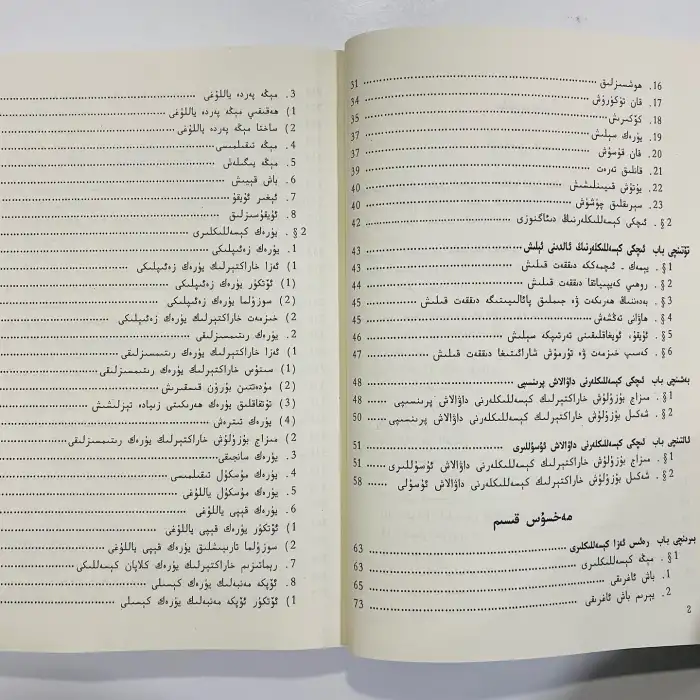 16. هوشسىزلىق 31
17. قان تۈكۈرۈش 34
18. كۆكىرىش 35
19. يۈرەك سېلىش 37
20. قان قۇسۇش 37
21. قانلىق تەرەت 39
22. يۇتۇش قىيىنلىشىش 40
23. سېرىقلىق چۈشۈش 40
§2. ئىچكى كېسەللىكلەرنىڭ دىئاگنوزى 42
تۆتىنچى باب ئىچكى كېسەللىكلەرنىڭ ئالدىنى ئېلىش 43
§1. يېمەك ـ ئىچمەككە دىققەت قىلىش 43
§2. روھىي كەيپىياتقا دىققەت قىلىش 44
§3. بەدەننىڭ ھەرىكەت ۋە جىملىق پائالىيىتىگە دىققەت قىلىش 45
§4. ھاۋانى تەڭشەش 45
§5. ئۇيقۇ، ئويغاقلىقنى تەرتىپكە سېلىش 46
§6. كەسىپ خىزمەت ۋە تۇرمۇش شارائىتىغا دىققەت قىلىش 47
بەشىنچى باب ئىچكى كېسەللىكلەرنى داۋالاش پرىنسىپى 48
§1. مىزاج بۇزۇلۇش خاراكتېرلىك كېسەللىكلەرنى داۋالاش پرىنسىپى 48
§2. شەكىل بۇزۇلۇش خاراكتېرلىك كېسەللىكلەرنى داۋالاش پرىنسىپى 50
ئالتىنچى باب ئىچكى كېسەللىكلەرنى داۋالاش ئۇسۇللىرى 51
§1. مىزاج بۇزۇلۇش خاراكتېرلىك كېسەللىكلەرنى داۋالاش ئۇسۇللىرى 51
§2. شەكىل بۇزۇلۇش خاراكتېرلىك كېسەللىكلەرنى داۋالاش ئۇسۇلى 58
مەخسۇس قىسىم
بىرىنچى باب رەئىس ئەزا كېسەللىكلىرى 63
§1. مېڭە كېسەللىكلىرى 63
1. باش ئاغرىقى 65
2. يېرىم باش ئاغرىقى 73
2
3. مېڭە پەردە ياللۇغى
1) ھەقىقىي مېڭە پەردە ياللۇغى
2) ساختا مېڭە پەردە ياللۇغى
4. مېڭە تىقىلمىسى
5. مېڭە يىگىلەش
6. باش قېيىش
7. ئېغىر ئۇيقۇ
8. ئۇيقۇسىزلىق
§2. يۈرەك كېسەللىكلىرى
1. يۈرەك زەئىپلىكى
1) ئەزا خاراكتېرلىك يۈرەك زەئىپلىكى
(1) ئۆتكۈر يۈرەك زەئىپلىكى
(2) سوزۇلما يۈرەك زەئىپلىكى
2) خىزمەت خاراكتېرلىك يۈرەك زەئىپلىكى
2. يۈرەك رىتىمسىزلىقى
1) ئەزا خاراكتېرلىك يۈرەك رىتىمسىزلىقى
(1) سىنۇس خاراكتېرلىك يۈرەك رىتىمسىزلىقى
(2) مۇددەتتىن بۇرۇن قىسقىرىش
(3) تۇتقاقلىق يۈرەك ھەرىكىتى زىيادە تېزلىشىش
(4) يۈرەك تىترەش
2) مىزاج بۇزۇلۇش خاراكتېرلىك يۈرەك رىتىمسىزلىقى
3. يۈرەك سانجىقى
4. يۈرەك مۇسكۇل تىقىلمىسى
5. يۈرەك مۇسكۇل ياللۇغى
6. يۈرەك قېپى ياللۇغى
1) ئۆتكۈر يۈرەك قېپى ياللۇغى
2) سوزۇلما تارىيىشلىق يۈرەك قېپى ياللۇغى
7. رېماتىزىم خاراكتېرلىك يۈرەك كلاپان كېسەللىكى
8. ئۆپكە مەنبەلىك يۈرەك كېسىلى
1) ئۆتكۈر ئۆپكە مەنبەلىك يۈرەك كېسىلى